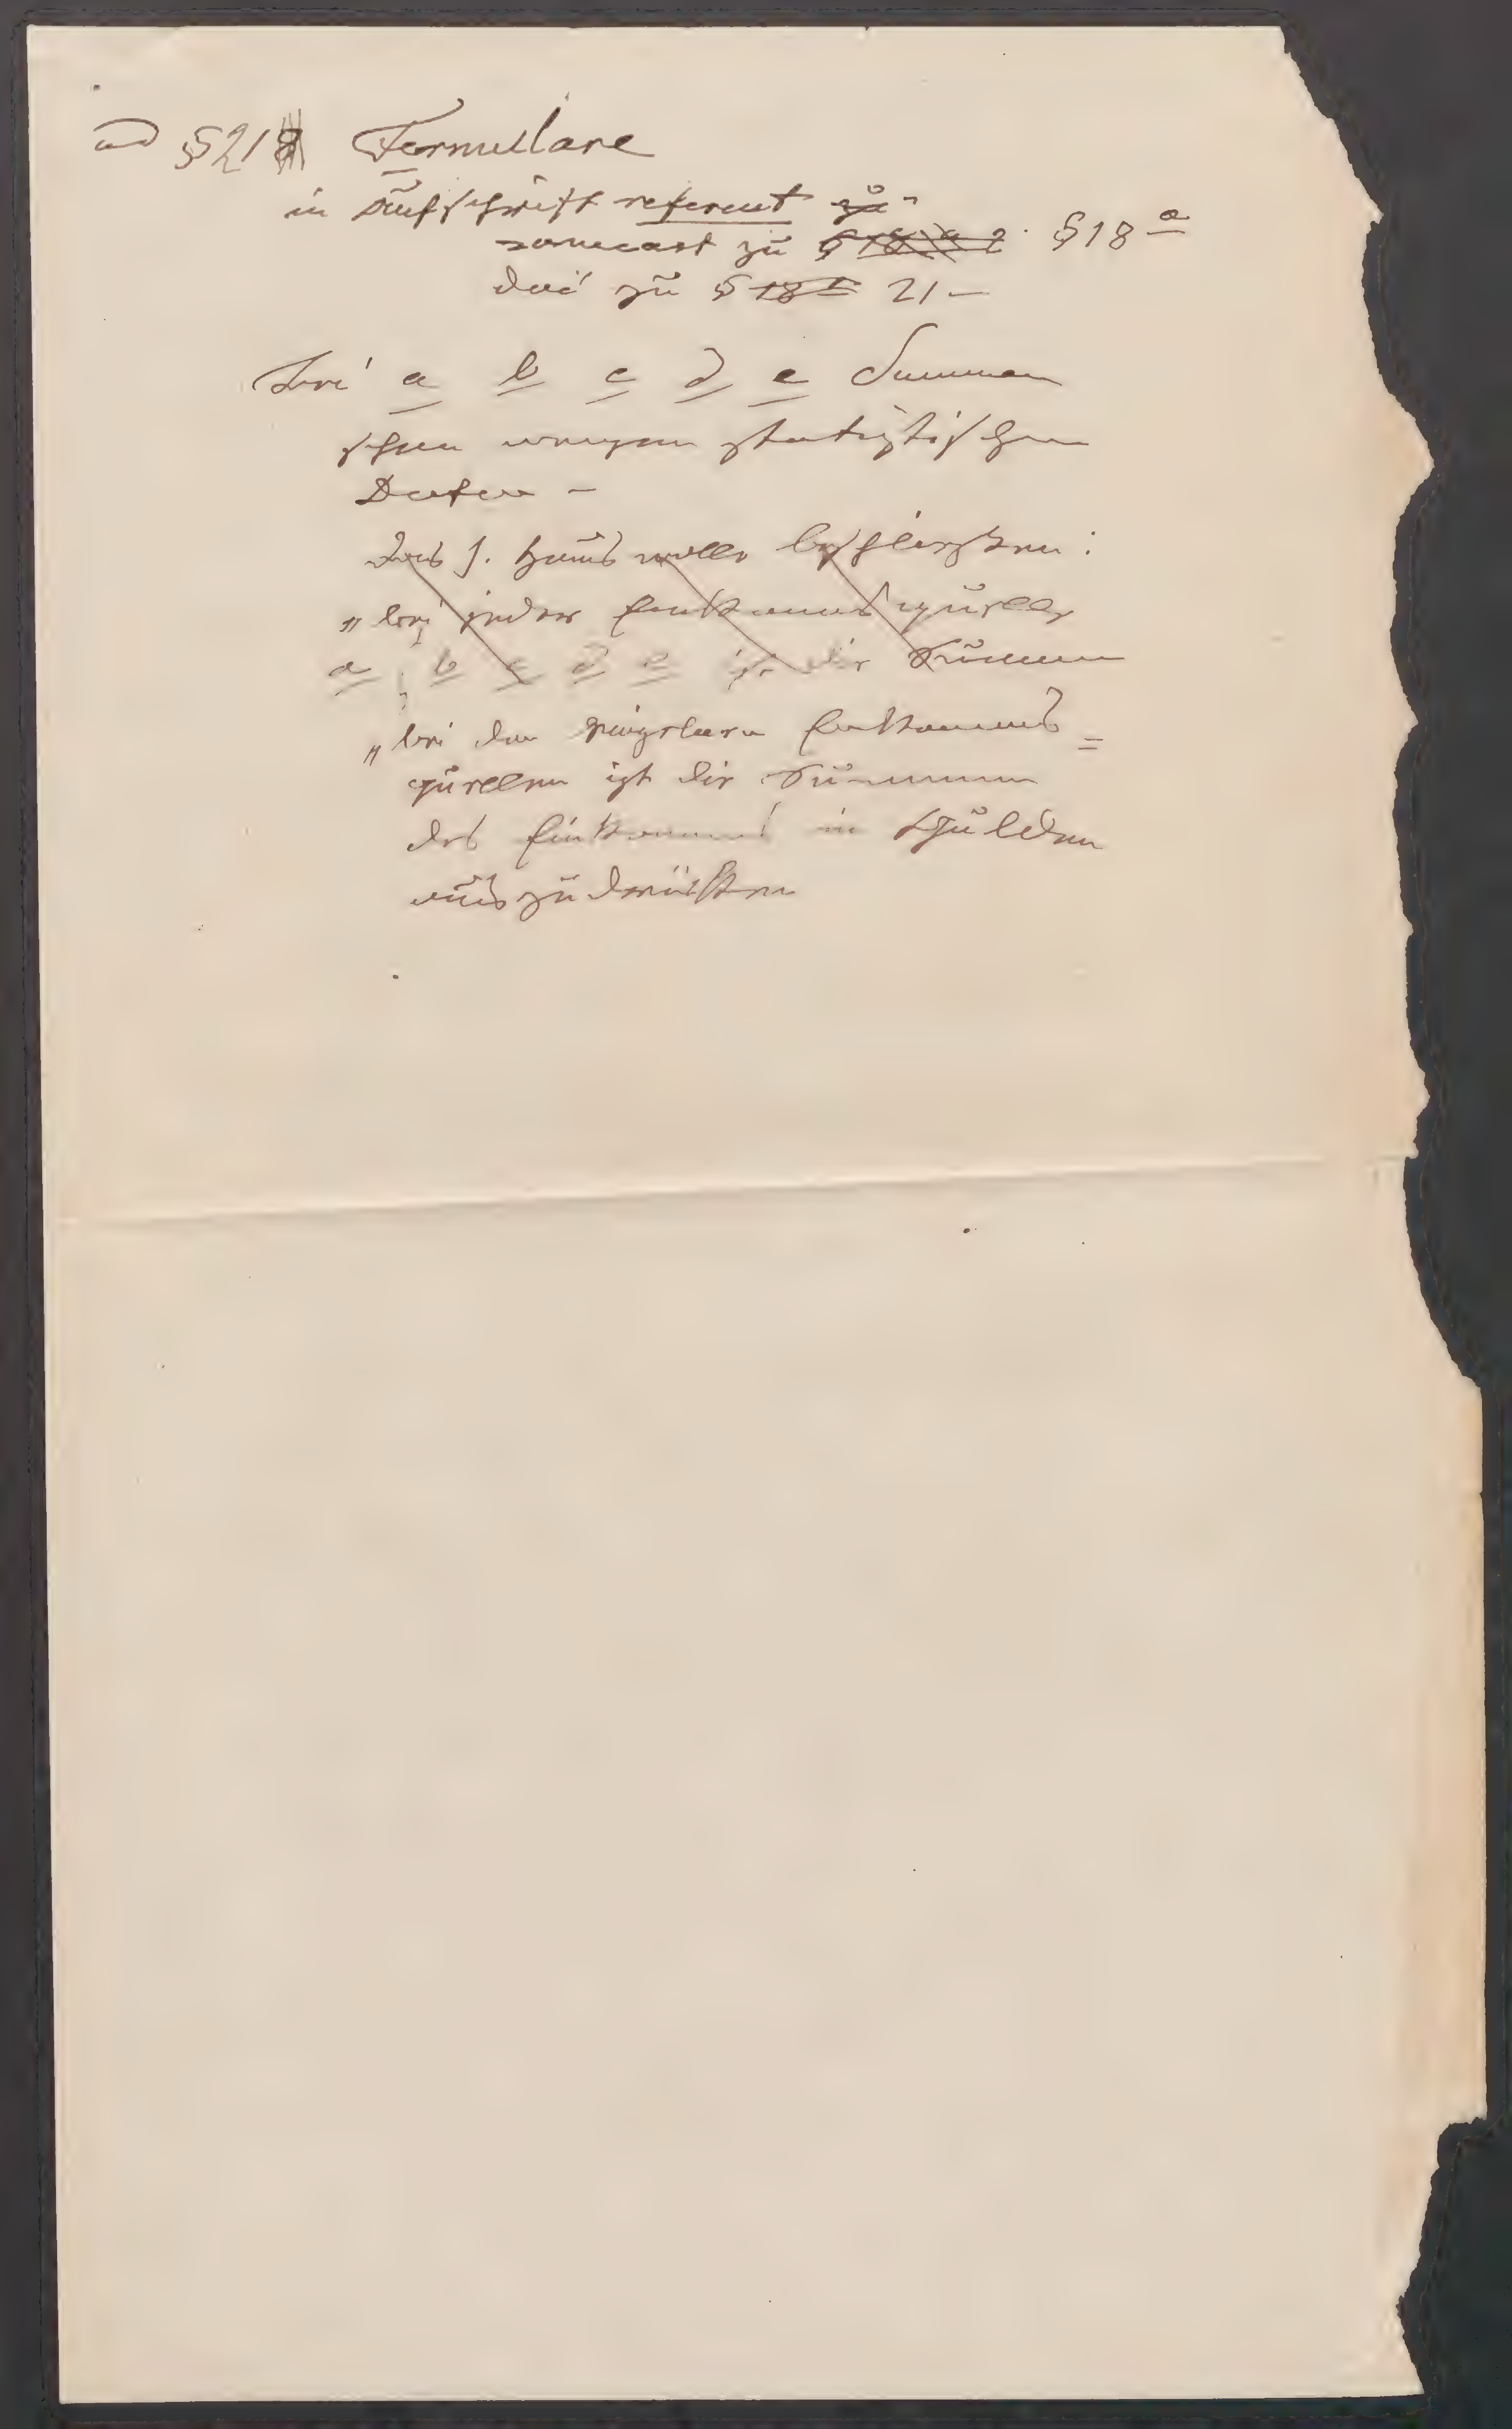 ad § 21 Formulare
in Aufschrift referent zu
zu § 18 a 2 § 18 a
bei zu § 18 21 –
bei a b c d e Summen
schon wegen statistischen
Daten –
das h. Haus wolle beschließen:
„bei jeder Einkommensquelle
a, b c d e ist die Summe
„bei den einzelnen Einkommens=
quellen ist die Summe
des Einkommens in Gulden
auszudrücken